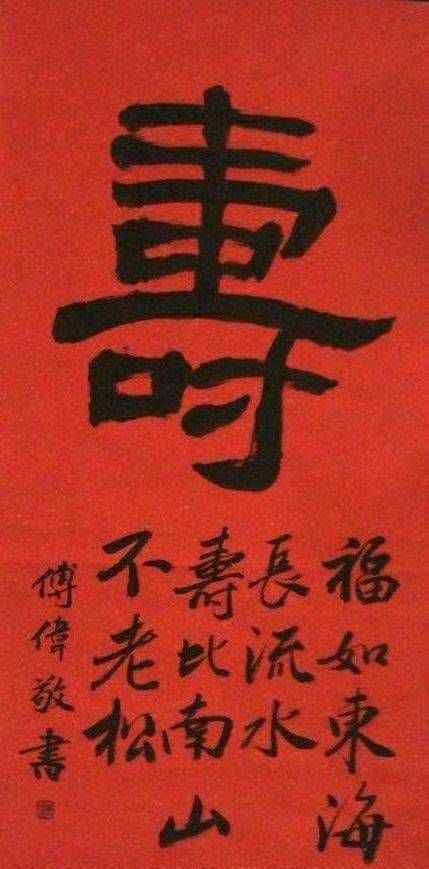 壽
福如東海
長流水
壽比南山
不老松
傅偉敬書